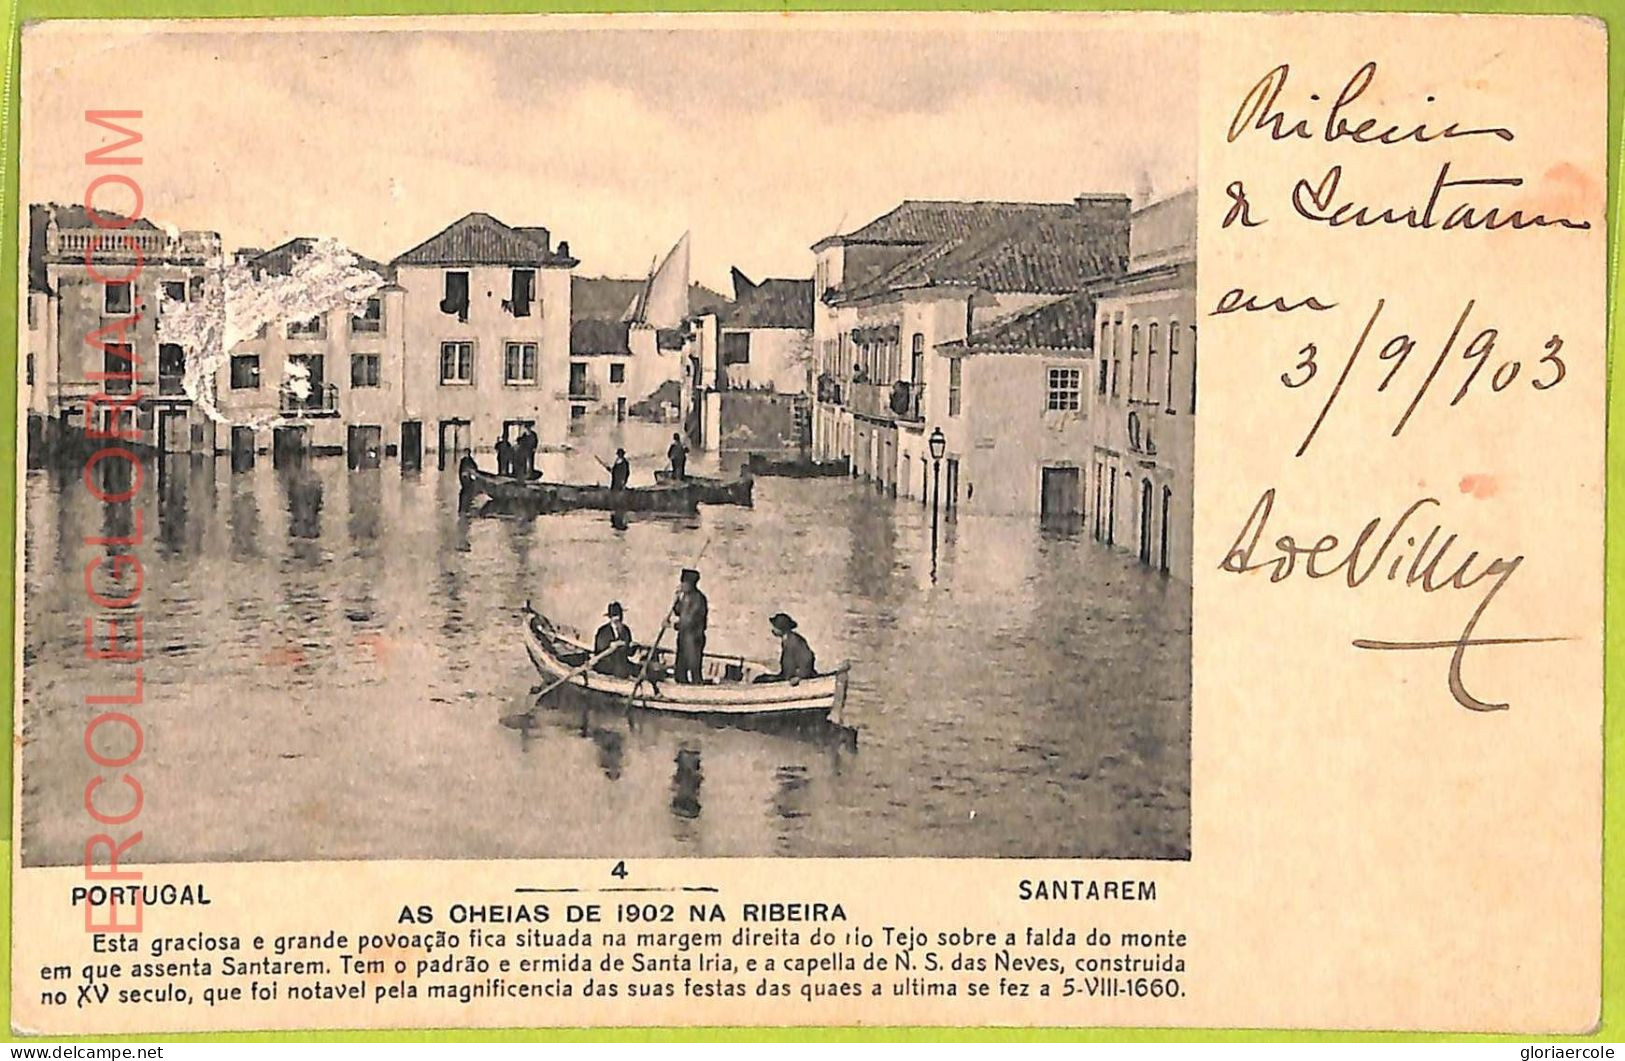 Ribeira
de Santarem
em
3/9/903
4
PORTUGAL
SANTAREM
AS CHEIAS DE 1902 NA RIBEIRA
Esta graciosa e grande povoação fica situada na margem direita do rio Tejo sobre a falda do monte
em que assenta Santarem. Tem o padrão e ermida de Santa Iria, e a capella de N. S. das Neves, construida
no XV seculo, que foi notavel pela magnificencia das suas festas das quaes a ultima se fez a 5-VIII-1660.
ERCOLEGLORIA.COM
www.delcampe.net
gloriaercole